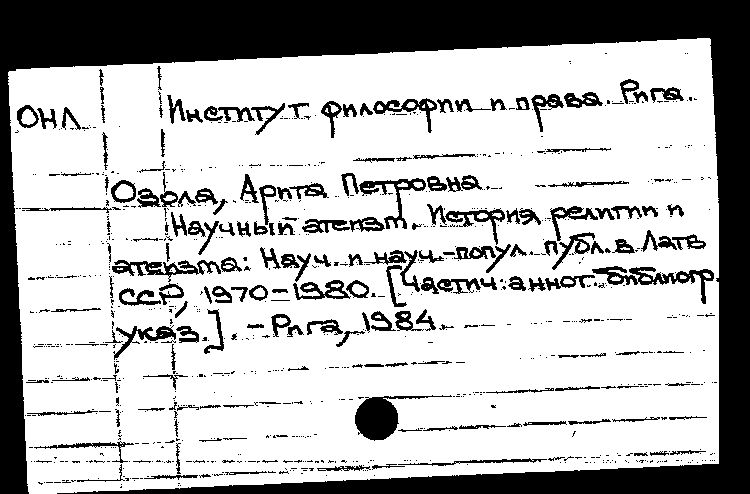 ОНЛ Институт философии и права. Рига.
Озола, Арита Петровна.
Научный атеизм. История религии и
атеизма: Науч. и науч.-попул. публ. в Латв
ССР, 1970-1980. [Частич. аннот. библиогр.
указ.]. - Рига, 1984.